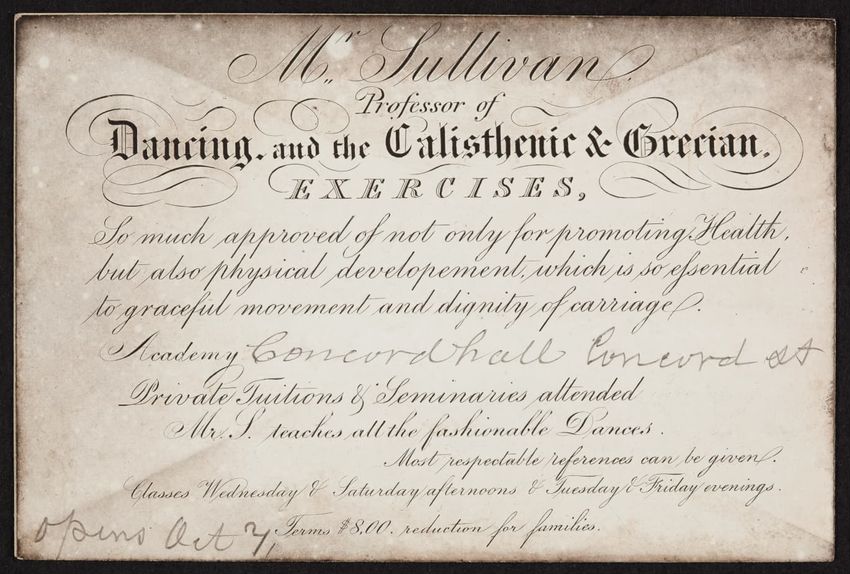 Mr. Sullivan.
Professor of
Dancing. and the Calisthenic & Grecian.
EXERCISES,
So much approved of not only for promoting Health,
but also physical developement, which is so essential
to graceful movement and dignity of carriage.
Academy Concord hall Concord st
Private Tuitions & Seminaries attended
Mr. S. teaches all the fashionable Dances.
Most respectable references can be given.
Classes Wednesday & Saturday afternoons & Tuesday & Friday evenings.
opens Oct 7, Terms $8.00. reduction for families.